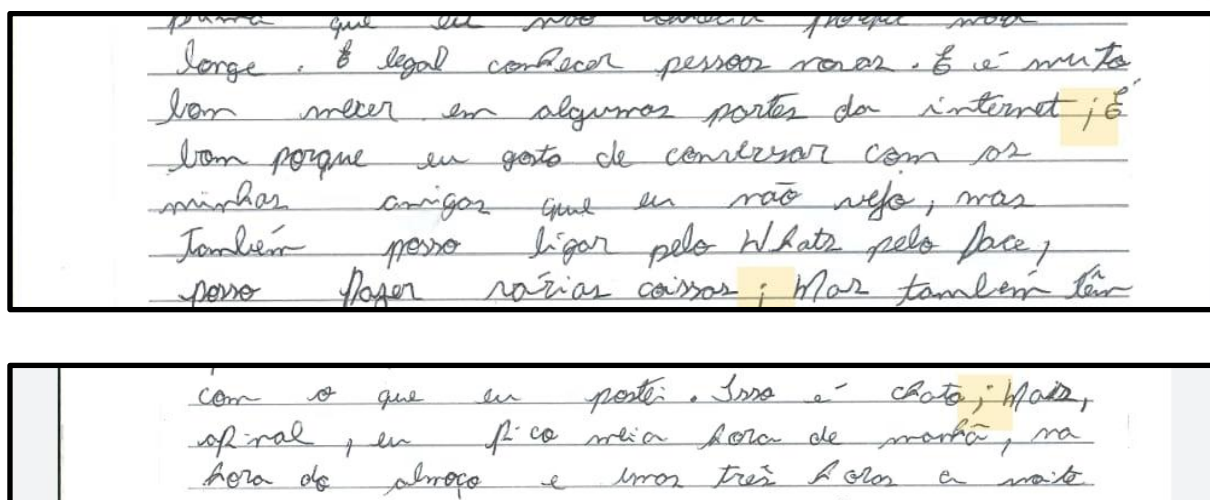 que eu não conhecia porque mora
longe . É legal conhecer pessoas novas . E é muito
bom mecer em algumas partes da internet ; É
bom porque eu gosto de conversar com os
minhas amigas que eu não vejo, mas
também posso ligar pelo Whats pelo face,
posso fazer várias coissas ; Mas também têm
com o que eu postei . Isso é chato ; Mais,
afinal , eu fico meia hora de manhã , na
hora do almoço e umas três horas a noite